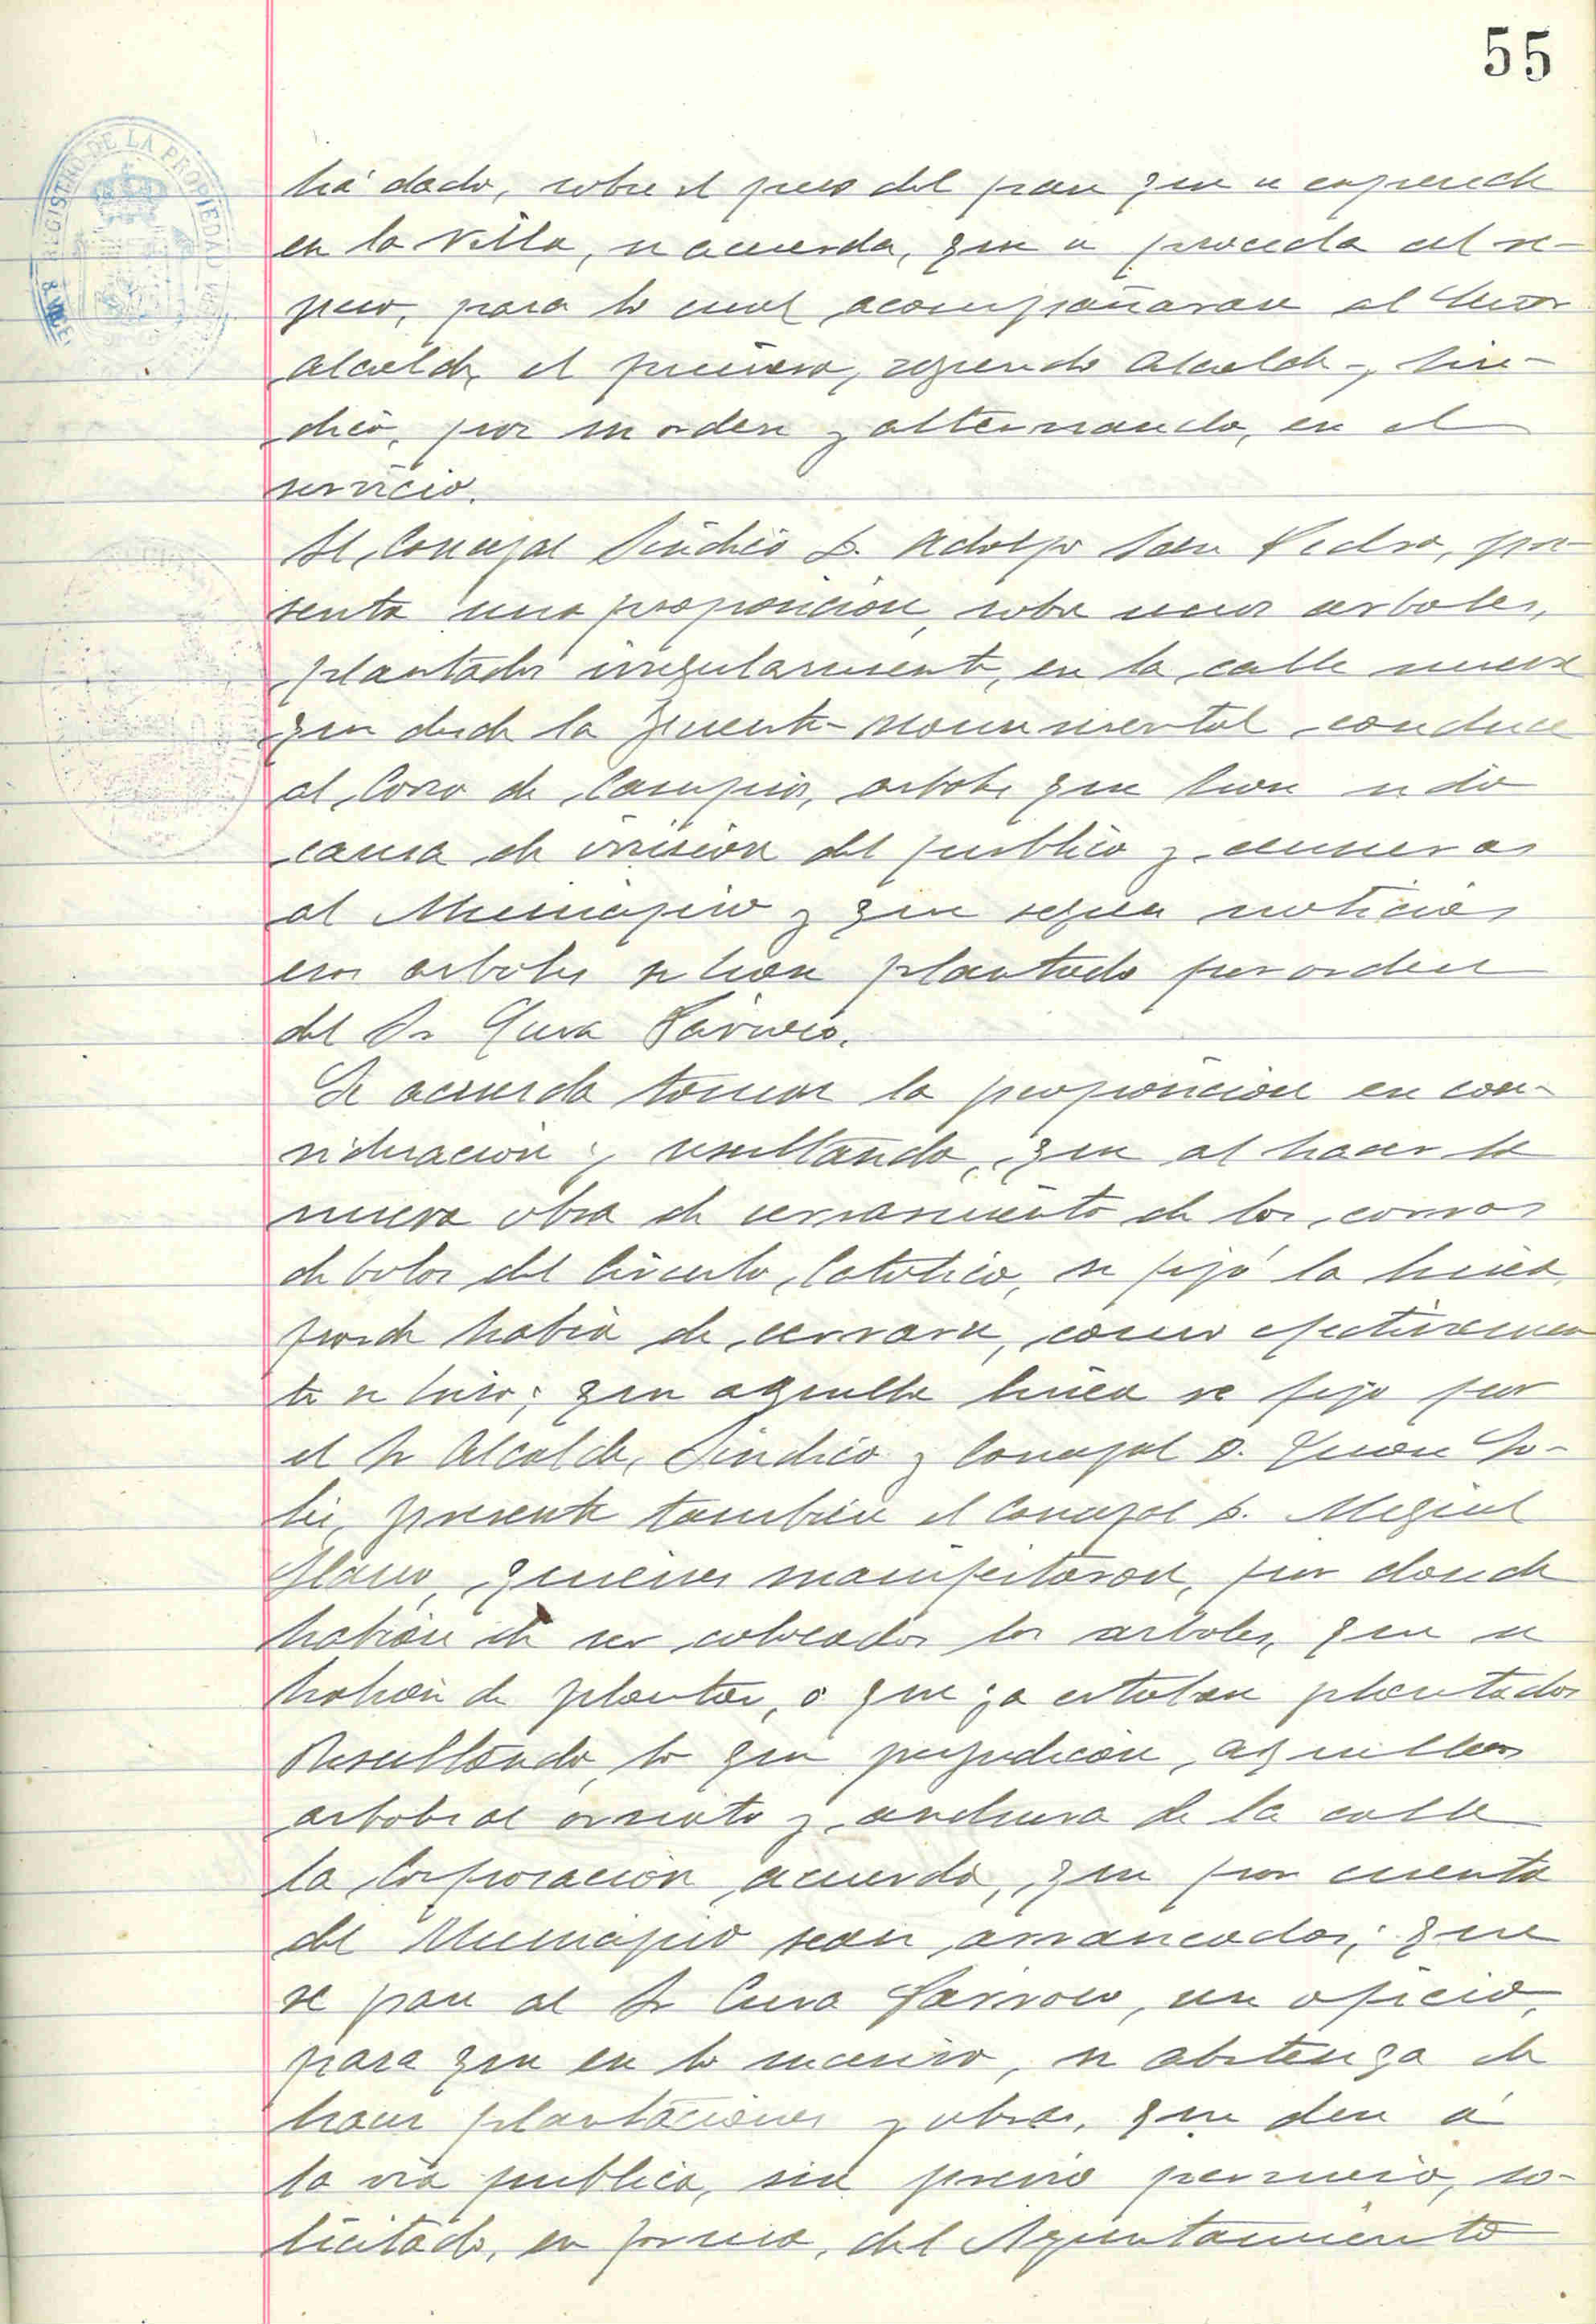 55
REGISTRO DE LA PROPIEDAD
há dado, sobre el peso del pan que se expende
en la Villa, se acuerda, que se proceda al re-
peso, para lo cual acompañaran al Señor
Alcalde, el primero, segundo Alcalde y Sin-
dico, por su orden y alternando, en el
servicio.
El Concejal Sindico D. Adolfo San Pedro, pre-
senta una proposicion, sobre unos arboles,
plantados irregularmente, en la calle nueva
que desde la fuente monumental conduce
al Coso de Campios, arboles que han sido
causa de irrision del publico y censuras
al Municipio y que segun noticias
esos arboles se han plantado por orden
del Sr Cura Párroco.
Se acuerda tomar la proposicion en con-
sideracion y resultando, que al hacer la
nueva obra de cerramiento de los corros
de bolos del Circulo Catolico, se fijó la linea
por do habia de cerrarse, como efectivamen-
te se hizo; que aquella linea se fijo por
el Sr Alcalde, Sindico y Concejal D. Juan
presente tambien el Concejal D. Miguel
quienes manifestaron, por donde
habian de ser colocados los arboles, que se
habian de plantar, o que ya estaban plantados
Resultando, lo que perjudican, aquellos
arboles al ornato y anchura de la calle
la Corporacion acuerda, que por cuenta
del Municipio sean arrancados; que
se pase al Sr Cura Parroco, un oficio,
para que en lo sucesivo, se abstenga de
hacer plantaciones y obras, que den á
la via publica, sin previo permiso, so-
licitado, en forma, del Ayuntamiento